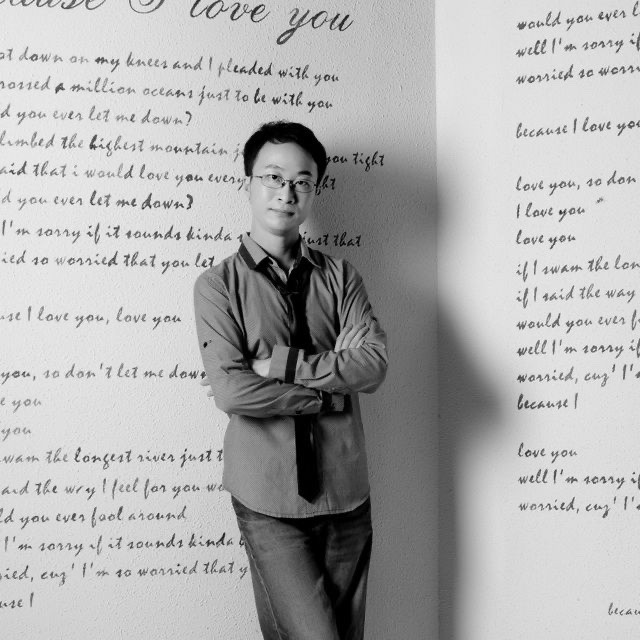 I love you
down on my knees and I pleaded with you
a million oceans just to be with you
you ever let me down?
the highest mountain
you tight
that i would love you every
you ever let me down?
I'm sorry if it sounds kinda
just that
so worried that you let
I love you, love you
you, so don't let me down
you
you
the longest river just
the way I feel for you
you ever fool around
I'm sorry if it sounds kinda
cuz' I'm so worried that
would you ever
well I'm sorry if
worried so
because I love you
love you, so don
I love you
love you
if I swam the
if I said the way
would you ever
well I'm sorry if
worried, cuz' I'
because I
love you
well I'm sorry if
worried, cuz' I'